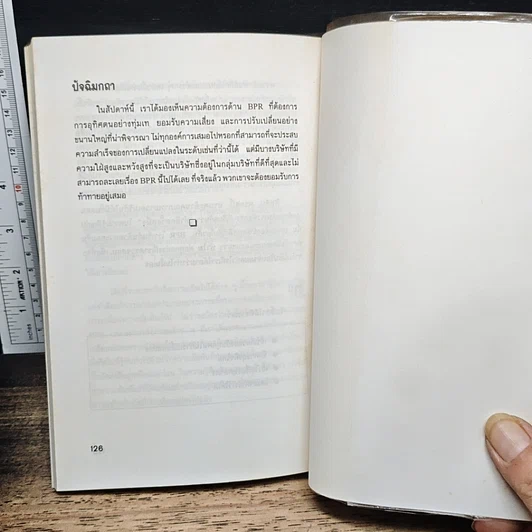 ปัจฉิมกถา
ในสัปดาห์นี้ เราได้มองเห็นความต้องการด้าน BPR ที่ต้องการ
การอุทิศตนอย่างทุ่มเท ยอมรับความเสี่ยง และการปรับเปลี่ยนอย่าง
ขนานใหญ่ที่น่าพิจารณา ไม่ทุกองค์การเสมอไปหรอกที่สามารถที่จะประสบ
ความสำเร็จของการเปลี่ยนแปลงในระดับเช่นที่ว่านี้ได้ แต่มีบางบริษัทที่มี
ความใฝ่สูงและหวังสูงที่จะเป็นบริษัทซึ่งอยู่ในกลุ่มบริษัทที่ดีที่สุดและไม่
สามารถละเลยเรื่อง BPR นี้ไปได้เลย ที่จริงแล้ว พวกเขาจะต้องยอมรับการ
ท้าทายอยู่เสมอ
126